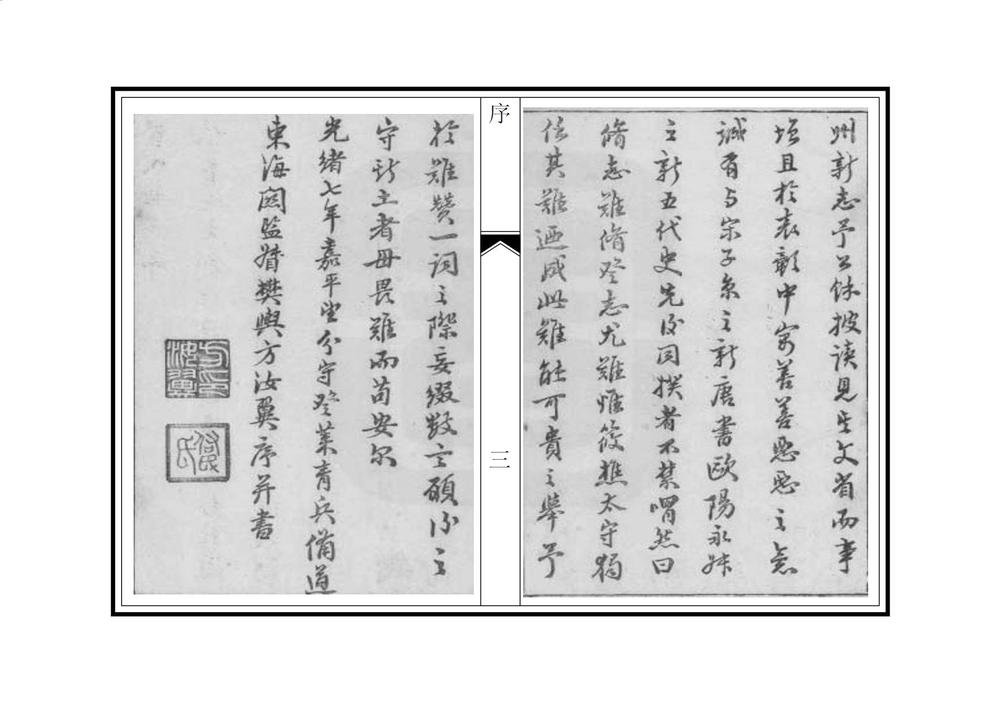 州新志予公餘披读見其文省而事
增且於表彰中寓善善惡惡之意
誠有与宋子京之新唐書歐陽永叔
之新五代史先後同揆者不禁喟然曰
脩志難脩登志尤難惟筱樵太守獨
任其難迺成此難能可貴之舉予
序
三
於難贊一詞之際妄綴数言願後之
守斯土者毋畏難而苟安尔
光緒七年嘉平坐分守登萊青兵備道
東海関監督樊輿方汝翼序并書
方汝翼印